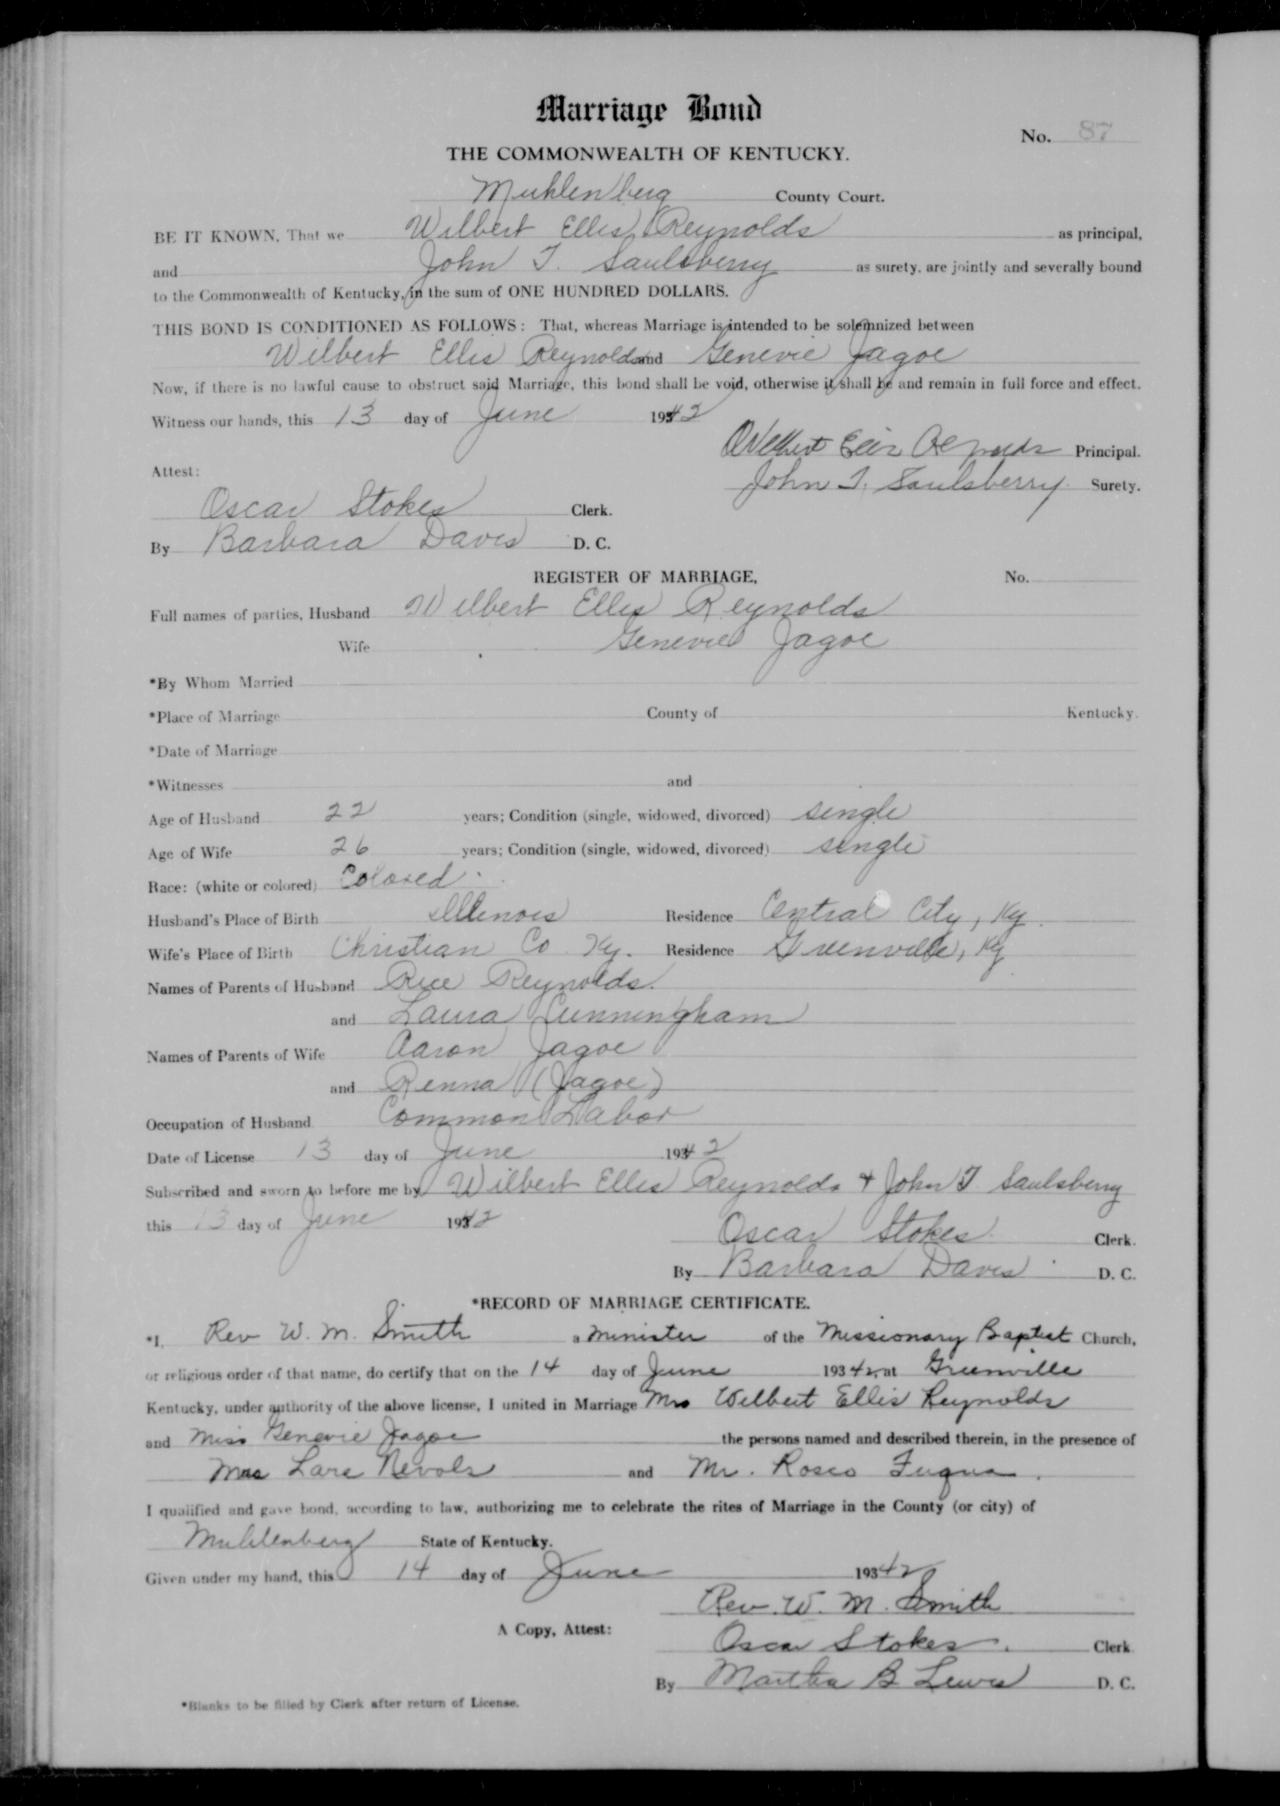 Marriage Bond
No. 87
THE COMMONWEALTH OF KENTUCKY.
Muhlenberg County Court.
BE IT KNOWN, That we Wilbert Ellis Reynolds as principal,
and John T. Saulsberry as surety, are jointly and severally bound
to the Commonwealth of Kentucky, in the sum of ONE HUNDRED DOLLARS.
THIS BOND IS CONDITIONED AS FOLLOWS: That, whereas Marriage is intended to be solemnized between
Wilbert Ellis Reynolds and Genevie Jagoe
Now, if there is no lawful cause to obstruct said Marriage, this bond shall be void, otherwise it shall be and remain in full force and effect.
Witness our hands, this 13 day of June 19342
Wilbert Ellis Reynolds Principal.
Attest:
John T. Saulsberry Surety.
Oscar Stokes Clerk.
By Barbara Davis D. C.
REGISTER OF MARRIAGE, No.
Full names of parties, Husband Wilbert Ellis Reynolds
Wife Genevie Jagoe
*By Whom Married
*Place of Marriage County of Kentucky.
*Date of Marriage
*Witnesses and
Age of Husband 22 years; Condition (single, widowed, divorced) single
Age of Wife 26 years; Condition (single, widowed, divorced) single
Race: (white or colored) Colored
Husband's Place of Birth Illinois Residence Central City, Ky.
Wife's Place of Birth Christian Co Ky. Residence Greenville, Ky
Names of Parents of Husband Rice Reynolds.
and Laura Cunningham
Names of Parents of Wife Aaron Jagoe
and Renna (Jagoe)
Occupation of Husband Common Labor
Date of License 13 day of June 19342
Subscribed and sworn to before me by Wilbert Ellis Reynolds & John T. Saulsberry
this 13 day of June 19342
Oscar Stokes Clerk.
By Barbara Davis D. C.
*RECORD OF MARRIAGE CERTIFICATE.
*I, Rev W. M. Smith a minister of the Missionary Baptist Church,
or religious order of that name, do certify that on the 14 day of June 19342, at Greenville
Kentucky, under authority of the above license, I united in Marriage Mr Wilbert Ellis Reynolds
and Miss Genevie Jagoe the persons named and described therein, in the presence of
Mrs Lare Nevols and Mr. Rosco Fuqua.
I qualified and gave bond, according to law, authorizing me to celebrate the rites of Marriage in the County (or city) of
Muhlenberg State of Kentucky.
Given under my hand, this 14 day of June 19342
Rev. W. M. Smith
A Copy, Attest:
Oscar Stokes. Clerk
By Martha B Lewis D. C.
*Blanks to be filled by Clerk after return of License.